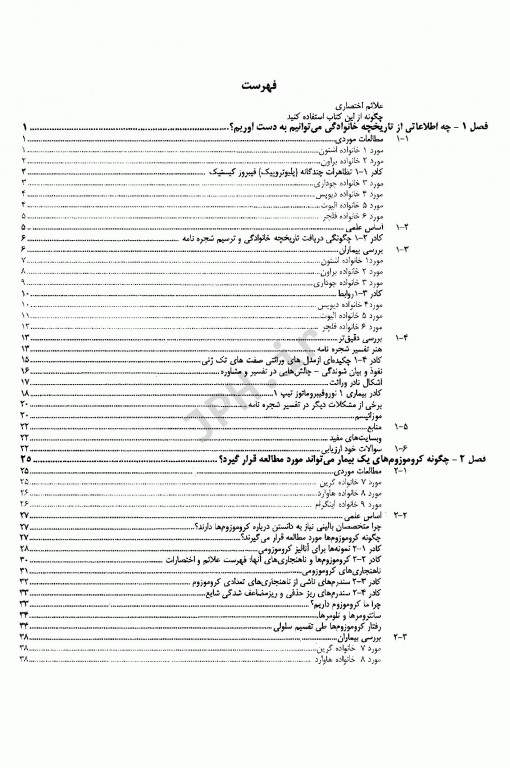 فهرست
علائم اختصاری
چگونه از این کتاب استفاده کنید
فصل ۱ - چه اطلاعاتی از تاریخچه خانوادگی می‌توانیم به دست آوریم؟ ۱
۱-۱ مطالعات موردی ۱
مورد ۱ خانواده اشتون ۱
مورد ۲ خانواده براون ۲
کادر ۱-۱ تظاهرات چندگانه (پلیوتروپیک) فیبروز کیستیک ۳
مورد ۳ خانواده چوداری ۳
مورد ۴ خانواده دیویس ۴
مورد ۵ خانواده الیوت ۴
مورد ۶ خانواده فلچر ۵
۱-۲ اساس علمی ۵
کادر ۱-۲ چگونگی دریافت تاریخچه خانوادگی و ترسیم شجره نامه ۶
۱-۳ بررسی بیماران ۶
مورد۱ خانواده اشتون ۷
مورد ۲ خانواده براون ۸
مورد ۳ خانواده چوداری ۹
کادر ۱-۳روابط ۱۰
مورد۴ خانواده دیویس ۱۰
مورد ۵ خانواده الیوت ۱۱
مورد ۶ خانواده فلچر ۱۲
۱-۴ بررسی دقیق‌تر ۱۳
هنر تفسیر شجره نامه ۱۳
کادر ۱-۴ چکیده‌ای ازمدل های وراثتی صفت های تک ژنی ۱۵
نفوذ و بیان شوندگی - چالش‌هایی در تفسیر و مشاوره ۱۶
اشکال نادر وراثت ۱۷
کادر بیماری ۱ نوروفیبروماتوز تیپ ۱ ۱۸
برخی از مشکلات دیگر در تفسیر شجره نامه ۲۰
موزائیسم ۲۰
۱-۵ منابع ۲۲
وبسایت‌های مفید ۲۲
۱-۶ سوالات خود ارزیابی ۲۲
فصل ۲ - چگونه کروموزوم‌های یک بیمار می‌تواند مورد مطالعه قرار گیرد؟ ۲۵
۲-۱ مطالعات موردی ۲۵
مورد ۷ خانواده گرین ۲۵
مورد ۸ خانواده هاوارد ۲۶
مورد ۹ خانواده اینگرام ۲۶
۲-۲ اساس علمی ۲۷
چرا متخصصان بالینی نیاز به دانستن درباره کروموزوم‌ها دارند؟ ۲۷
چگونه کروموزوم‌ها مورد مطالعه قرار می‌گیرند؟ ۲۷
کادر ۲-۱ نمونه‌ها برای آنالیز کروموزومی ۲۸
کادر ۲-۲ کروموزوم‌ها و ناهنجاری‌های آنها؛ فهرست علائم و اختصارات ۳۰
ناهنجاری‌های کروموزومی ۳۱
کادر ۲-۳ سندرم‌های ناشی از ناهنجاری‌های تعدادی کروموزوم ۳۲
کادر ۲-۴ سندرم‌های ریز حذفی و ریزمضاعف شدگی شایع ۳۳
چرا ما کروموزوم داریم؟ ۳۳
سانترومرها و تلومرها ۳۴
رفتار کروموزوم‌ها طی تقسیم سلولی ۳۴
۲-۳ بررسی بیماران ۳۸
مورد ۷ خانواده گرین ۳۸
مورد ۸ خانواده هاوارد ۳۸
JPH.ir